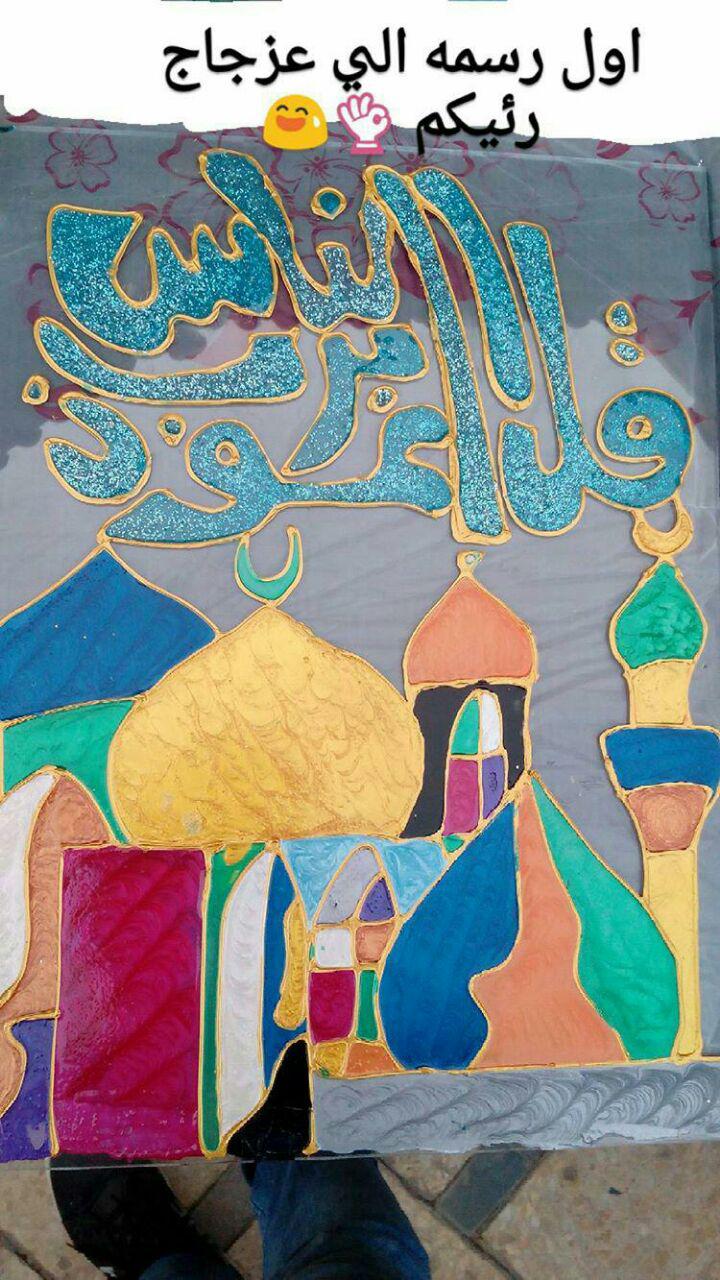 اول رسمه الي عزجاج
رئيكم 👌😄
قل اعوذ
برب
الناس